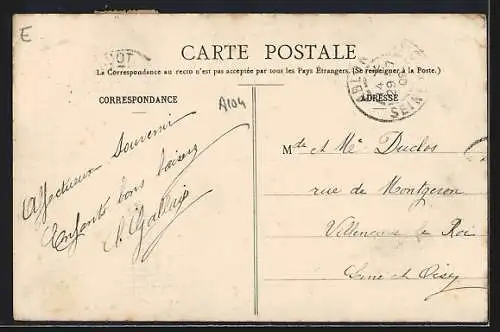 E
CARTE POSTALE
La Correspondance au recto n'est pas acceptée par tous les Pays Étrangers. (Se renseigner à la Poste.)
CORRESPONDANCE
A104
ADRESSE
ABLON
SEINE
Affectueux Souvenir
Enfants bons baisers
Mde et Mr Duclos
rue de Montgeron
Villeneuve le Roi
Seine et Oise